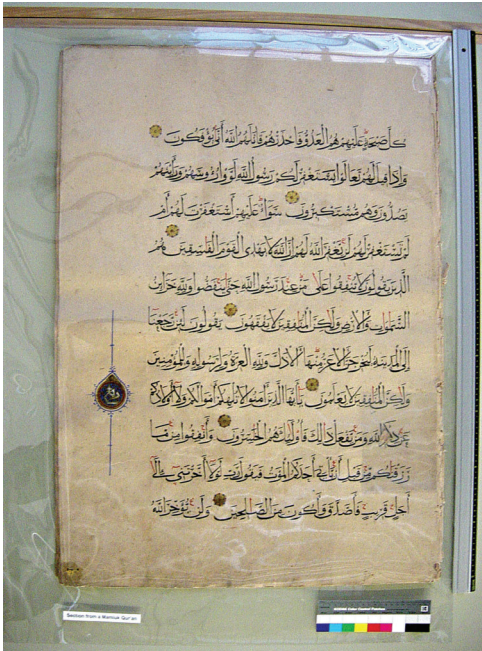 كل صيحة عليهم هم العدو فاحذرهم قاتلهم الله أنى يؤفكون
وإذا قيل لهم تعالوا يستغفر لكم رسول الله لووا رؤسهم ورأيتهم
يصدون وهم مستكبرون سواء عليهم أستغفرت لهم أم
لم تستغفر لهم لن يغفر الله لهم إن الله لا يهدي القوم الفاسقين هم
الذين يقولون لا تنفقوا على من عند رسول الله حتى ينفضوا ولله خزائن
السموات والأرض ولكن المنافقين لا يفقهون يقولون لئن رجعنا
إلى المدينة ليخرجن الأعز منها الأذل ولله العزة ولرسوله وللمؤمنين
ولكن المنافقين لا يعلمون يأيها الذين آمنوا لا تلهكم أموالكم ولا أولادكم
عن ذكر الله ومن يفعل ذلك فأولئك هم الخسرون وأنفقوا من ما
رزقناكم من قبل أن يأتي أحدكم الموت فيقول رب لولا أخرتني إلى
أجل قريب فأصدق وأكون من الصالحين ولن يؤخر الله
Section from a Mamluk Qur'an